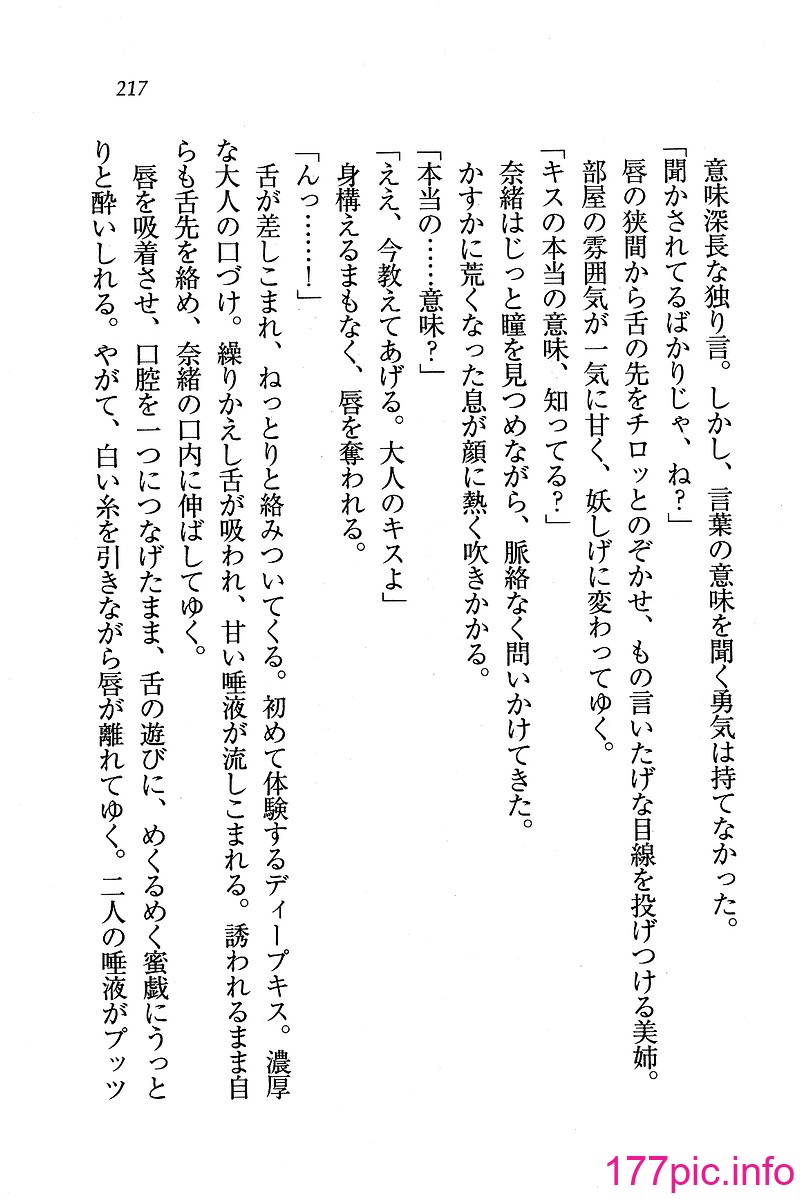 217
意味深長な独り言。しかし、言葉の意味を聞く勇気は持てなかった。
「聞かされてるばかりじゃ、ね？」
唇の狭間から舌の先をチロッとのぞかせ、もの言いたげな目線を投げつける美姉。
部屋の雰囲気が一気に甘く、妖しげに変わってゆく。
「キスの本当の意味、知ってる？」
奈緒はじっと瞳を見つめながら、脈絡なく問いかけてきた。
かすかに荒くなった息が顔に熱く吹きかかる。
「本当の……意味？」
「ええ、今教えてあげる。大人のキスよ」
身構えるまもなく、唇を奪われる。
「んっ……！」
舌が差しこまれ、ねっとりと絡みついてくる。初めて体験するディープキス。濃厚
な大人の口づけ。繰りかえし舌が吸われ、甘い唾液が流しこまれる。誘われるまま自
らも舌先を絡め、奈緒の口内に伸ばしてゆく。
唇を吸着させ、口腔を一つにつなげたまま、舌の遊びに、めくるめく蜜戯にうっと
りと酔いしれる。やがて、白い糸を引きながら唇が離れてゆく。二人の唾液がプッツ
177pic.info